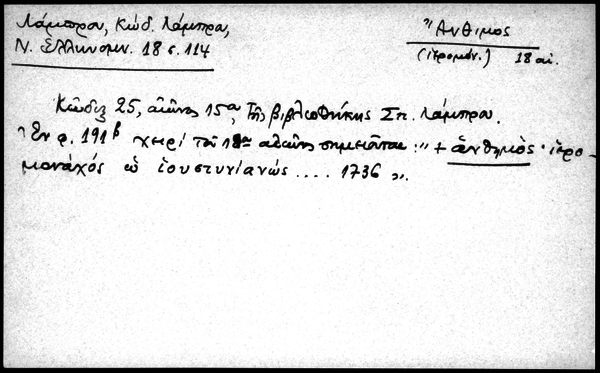 Λάμπρου, Κώδ. Λάμπρα,
Ν. Ἑλληνομν. 18 σ. 114
Ἄνθιμος
(ἱερομόν.) 18 αἰ.
Κῶδιξ 25, αἰῶνος 15ου, τῆς βιβλιοθήκης Σπ. Λάμπρου.
Ἐν φ. 191β χειρὶ τοῦ 18ου αἰῶνος σημειοῦται: "+ ἄνθημὸς ἱερο-
μονάχός ὁ ἰουστυνιανώς .... 1736 ".